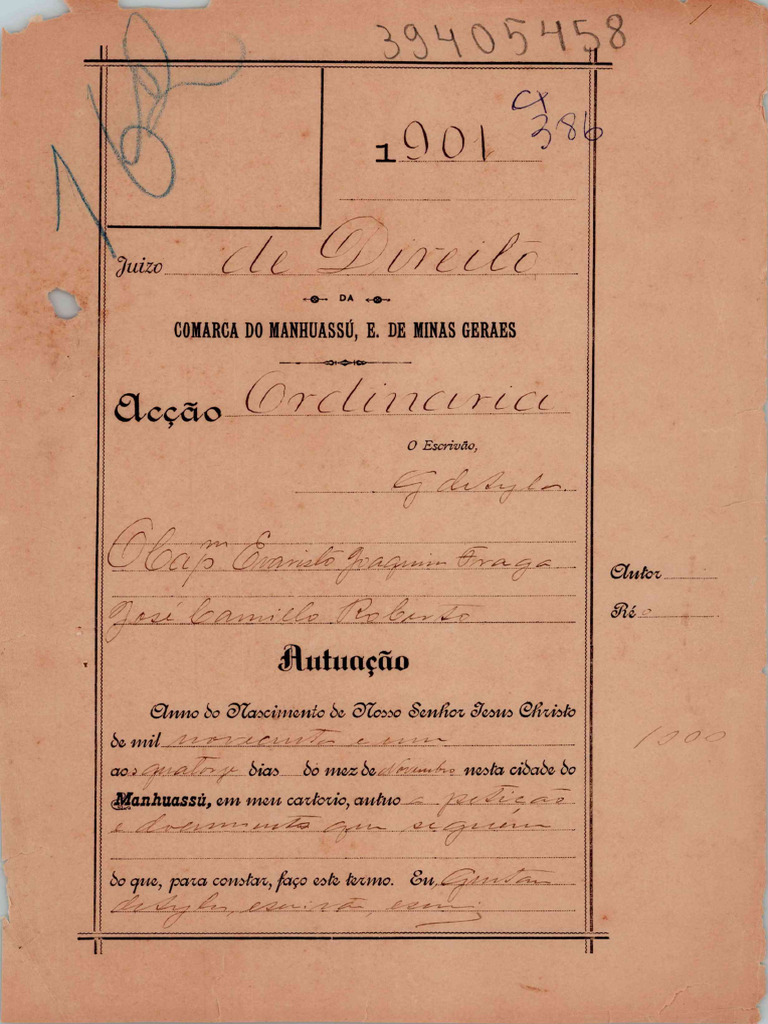 39405458
162
1901
cx
386
Juizo de Direito
DA
COMARCA DO MANHUASSÚ, E. DE MINAS GERAES
Acção Ordinaria
O Escrivão,
O Capm Evaristo Joaquim Fraga
Autor
José Camillo Roberto
Réo
Autuação
Anno do Nascimento de Nosso Senhor Jesus Christo
de mil novecentos e um
1900
aos quatorze dias do mez de Novembro nesta cidade do
Manhuassú, em meu cartorio, autuo a petição
e documentos que seguem
do que, para constar, faço este termo. Eu,
escrivão, escrevi